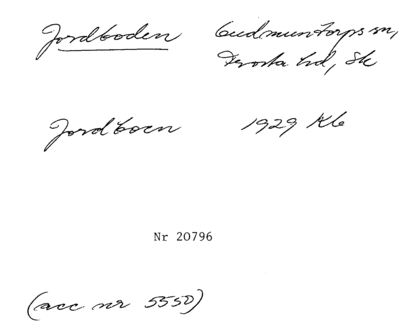 Jordboden Gudmuntorps sn,
Frosta hd, Sk
Jordboen 1929 Kb
Nr 20796
(acc nr 5550)